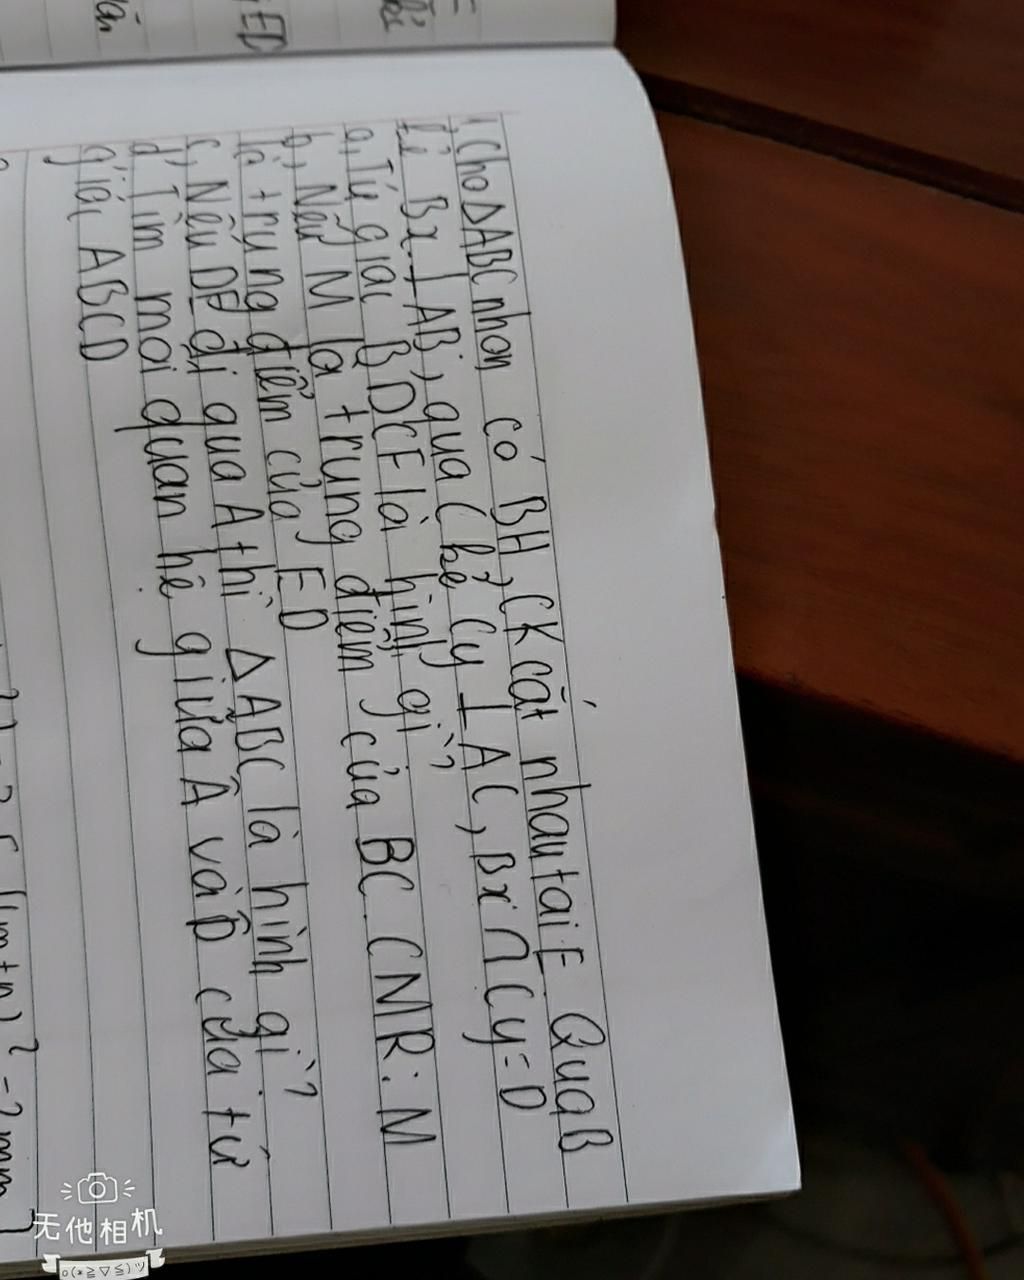 Cho ΔABC nhọn có BH, CK cắt nhau tại E Qua B
kẻ Bx ⊥ AB, qua C kẻ Cy ⊥ AC, Bx ∩ Cy = D
a, Tứ giác BDCE là hình gì?
b, Nếu M là trung điểm của BC CMR: M
là trung điểm của ED
c, Nếu DE đi qua A thì ΔABC là hình gì?
d, Tìm mối quan hệ giữa Â và D̂ của tứ
giác ABCD
ED
无他相机
o(*≧▽≦)ツ